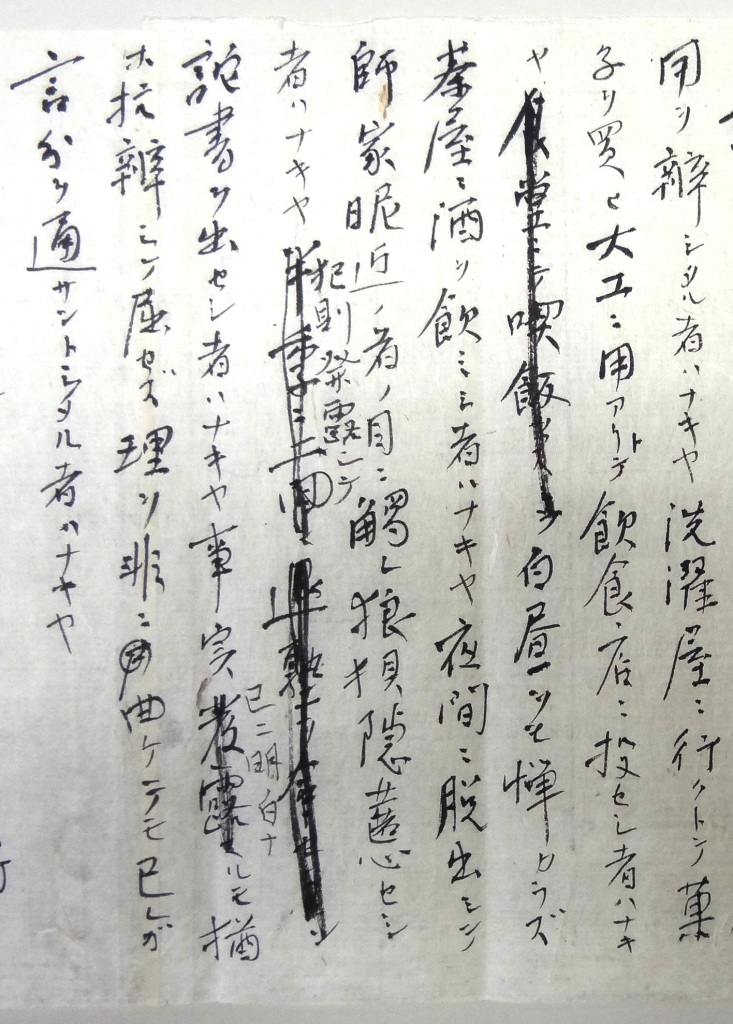 用ヲ辨シタル者ハナキヤ洗濯屋ニ行クトテ菓
子ヲ買ヒ大工ニ用アリトテ飲食店ニ投セシ者ハナキ
ヤ食堂ニテ喫飯 白昼ヲモ憚カラズ
茶屋ニ酒ヲ飲ミシ者ハナキヤ夜間ニ脱出シテ
師家昵近ノ者ノ目ニ觸レ狼狽隠慝セシ
者ハナキヤ半季ニ二回
犯則発露シテ
詫書ヲ出セシ者ハナキヤ事実発露スルモ猶
已ニ明白ナ
ホ抗辨シテ屈セズ理ヲ非ニ曲ケテモ已レガ
言分ヲ通サントシタル者ハナキヤ